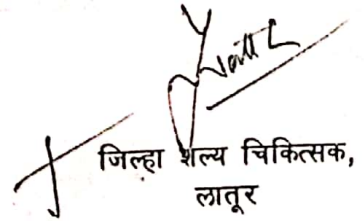 जिल्हा शल्य चिकित्सक,
लातूर